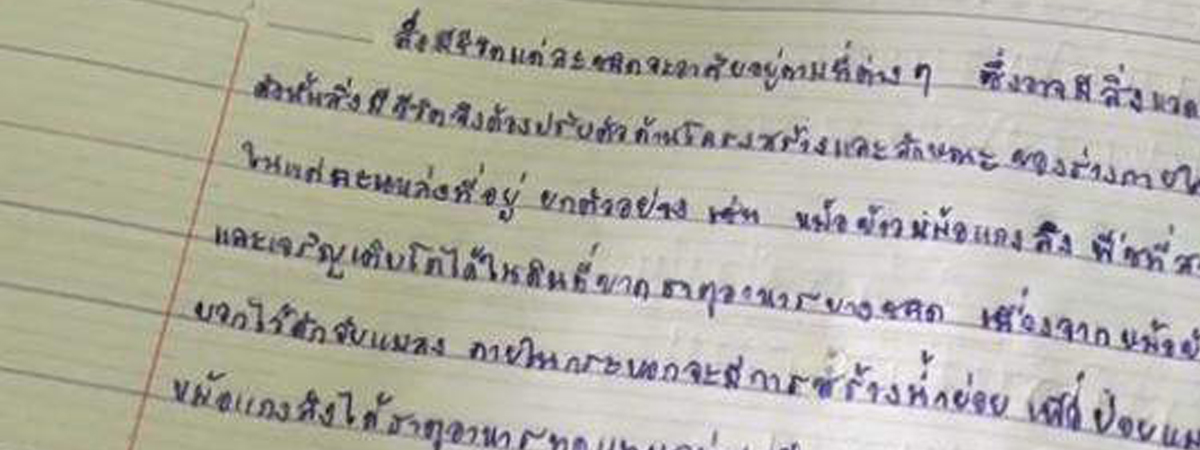 สิ่งมีชีวิตแต่ละชนิดจะอาศัยอยู่ตามที่ต่าง ๆ ซึ่งอาจมีสิ่งแวด
ดังนั้นสิ่งมีชีวิตจึงต้องปรับตัวด้านโครงสร้างและลักษณะ ของร่างกายให้
ในแต่ละแหล่งที่อยู่ ยกตัวอย่าง เช่น หม้อข้าวหม้อแกงลิง พืชที่
และเจริญเติบโตได้ในดินที่ขาด ธาตุอาหารบางชนิด เนื่องจากหม้อ
บอกไว้ดักจับแมลง ภายในกระบอกจะมีการสร้างน้ำย่อย เพื่อย่อยแม
หม้อแกงลิงได้ธาตุอาหาร